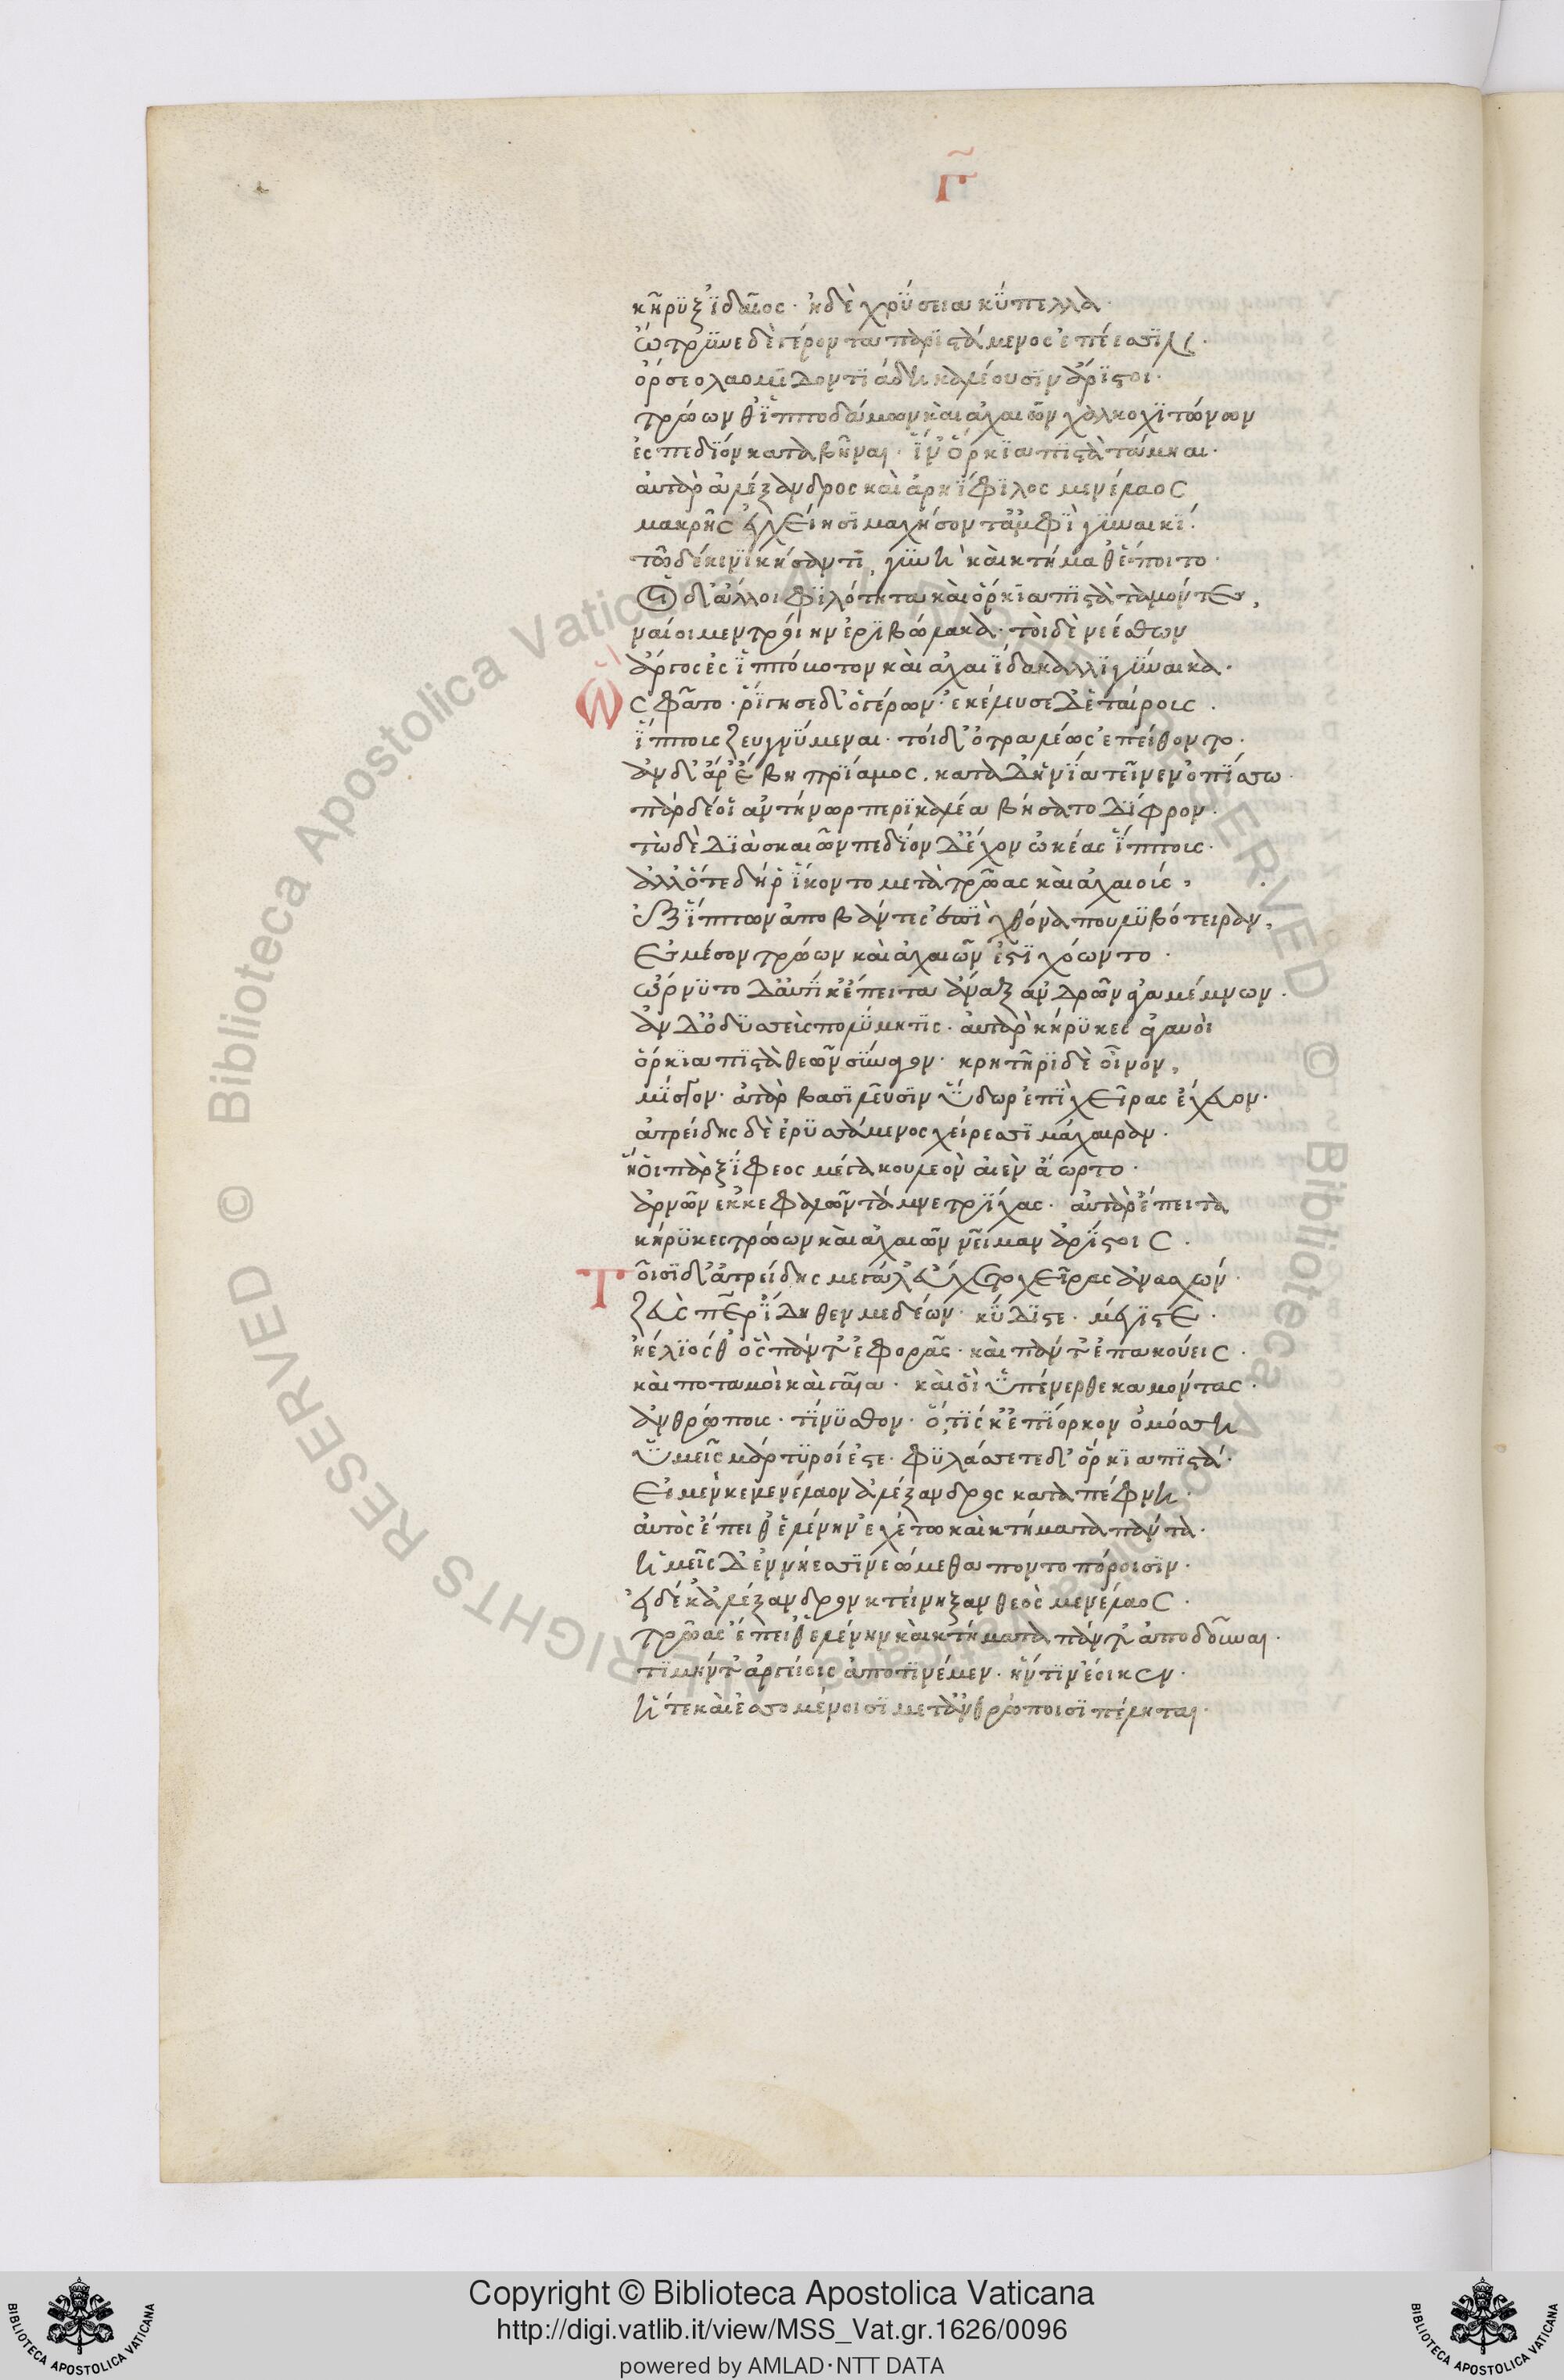 Γ
κῆρυξ ἰδαῖος· ἠδὲ χρύσεια κύπελλα·
ὤτρυνε δὲ γέροντα παριστάμενος ἐπέεσσιν·
ὄρσεο λαομεδοντιάδη καλέουσιν ἄριστοι·
τρώων θ' ἱπποδάμων καὶ ἀχαιῶν χαλκοχιτώνων
ἐς πεδίον καταβῆναι· ἵν' ὅρκια πιστὰ τάμηαι·
αὐτὰρ ἀλέξανδρος καὶ ἀρηίφιλος μενέλαος
μακρῆς ἐγχείησι μαχήσοντ' ἀμφὶ γυναικί·
τῶ δέ κε νικήσαντι, γυνὴ καὶ κτήμαθ' ἕποιτο·
Οἱ δ' ἄλλοι φιλότητα καὶ ὅρκια πιστὰ ταμόντες,
ναίοιμεν τροίην ἐριβώλακα· τοὶ δὲ νέεσθων
ἄργος ἐς ἱππόβοτον καὶ ἀχαιίδα καλλιγύναικα·
Ὣς φάτο· ῥίγησε δ' ὁ γέρων· ἐκέλευσε δ' ἑταίροις·
ἵππους ζευγνύμεναι· τοὶ δ' ὀτραλέως ἐπείθοντο·
ἂν δ' ἄρ' ἔβη πρίαμος, κατὰ δ' ἡνία τεῖνεν ὀπίσσω·
πὰρ δέ οἱ ἀντήνωρ περικαλέα βήσατο δίφρον·
τὼ δὲ διὰ σκαιῶν πεδίον δ' ἔχον ὠκέας ἵππους·
ἀλλ' ὅτε δή ῥ' ἵκοντο μετὰ τρῶας καὶ ἀχαιούς,
ἐξ ἵππων ἀποβάντες ἐπὶ χθόνα πουλυβότειραν,
ἐς μέσον τρώων καὶ ἀχαιῶν ἐστιχόωντο·
ὤρνυτο δ' αὐτίκ' ἔπειτα ἄναξ ἀνδρῶν ἀγαμέμνων·
ἂν δ' ὀδυσσεὺς πολύμητις· αὐτὰρ κήρυκες ἀγαυοὶ
ὅρκια πιστὰ θεῶν σύναγον· κρητῆρι δὲ οἶνον,
μίσγον· ἀτὰρ βασιλεῦσιν ὕδωρ ἐπὶ χεῖρας ἔχευον·
ἀτρείδης δὲ ἐρυσσάμενος χείρεσσι μάχαιραν·
ἥ οἱ πὰρ ξίφεος μέγα κουλεὸν αἰὲν ἄωρτο·
ἀρνῶν ἐκ κεφαλῶν τάμνε τρίχας· αὐτὰρ ἔπειτα
κήρυκες τρώων καὶ ἀχαιῶν νεῖμαν ἀρίστοις·
Τοῖσι δ' ἀτρείδης μεγάλ' εὔχετο χεῖρας ἀνασχών·
ζεὺς πάτερ ἴδηθεν μεδέων· κύδιστε· μέγιστε·
ἠέλιός θ' ὃς πάντ' ἐφορᾶς· καὶ πάντ' ἐπακούεις·
καὶ ποταμοὶ καὶ γαῖα· καὶ οἳ ὑπένερθε καμόντας·
ἀνθρώπους· τίνυσθον· ὅτις κ' ἐπίορκον ὀμόσση
ὑμεῖς μάρτυροί ἐστε· φυλάσσετε δ' ὅρκια πιστά·
Εἰ μέν κεν μενέλαον ἀλέξανδρος καταπέφνη·
αὐτὸς ἔπειθ' ἑλένην ἐχέτω καὶ κτήματα πάντα·
ἡμεῖς δ' ἐν νήεσσι νεώμεθα ποντοπόροισιν·
εἰ δέ κ' ἀλέξανδρον κτείνη ξανθὸς μενέλαος·
τρῶας ἔπειθ' ἑλένην καὶ κτήματα πάντ' ἀποδοῦναι·
τιμὴν τ' ἀργείοις ἀποτινέμεν· ἥν τιν' ἔοικεν·
ἥ τε καὶ ἐσσομένοισι μετ' ἀνθρώποισι πέληται·
Copyright © Biblioteca Apostolica Vaticana
http://digi.vatlib.it/view/MSS_Vat.gr.1626/0096
powered by AMLAD·NTT DATA
BIBLIOTECA APOSTOLICA VATICANA
BIBLIOTECA APOSTOLICA VATICANA
© Biblioteca Apostolica Vaticana ALL RIGHTS RESERVED
© Biblioteca Apostolica Vaticana ALL RIGHTS RESERVED